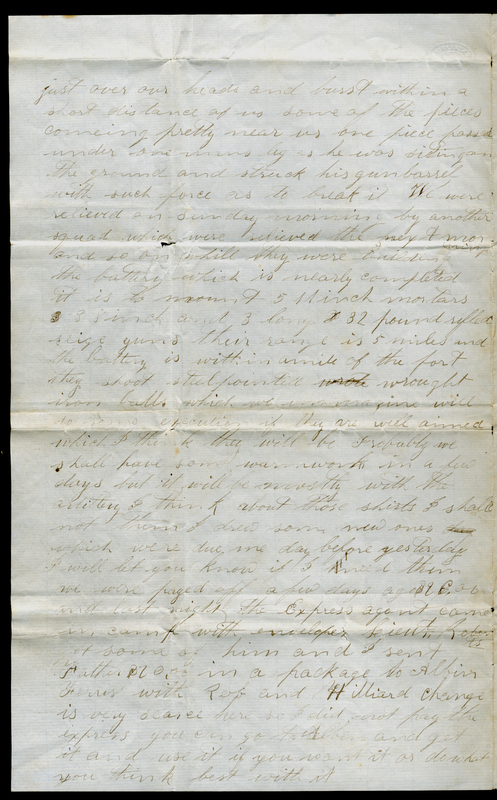 just over our heads and burst within a
short distance of us some of the pieces
comeing pretty near us one piece passed
under one mans leg as he was siting on
the ground and struck his gun barrel
with such force as to break it We were
relieved on sunday morning by another
squad which were relieved the next mor-
ning
and so on whill they were building
the battery which is nearly completed
it is to mount 5 11 inch mortars
3 8 inch and 3 long 32 pound
seige guns their range is 5 miles and
the battery is within a mile of the fort
they shoot steel pointed wrought
iron balls which we imagine will
do some execution if they are well aimed
which I think they will be Probably we
shall have some warm work in a few
days but it will be mostly with the
artilery I think about those shirts I shall
not them I drew some new ones
which were due me day before yesterday
I will let you know if I need them
we were payed off a few days ago
and last night the Express agent came
in camp with envelopes
some of him and I sent
Father in a package to
with and Hilliard change
is very scarce here so I did not pay the
express you can go and get
it and use it if you want it or do what
you think best with it